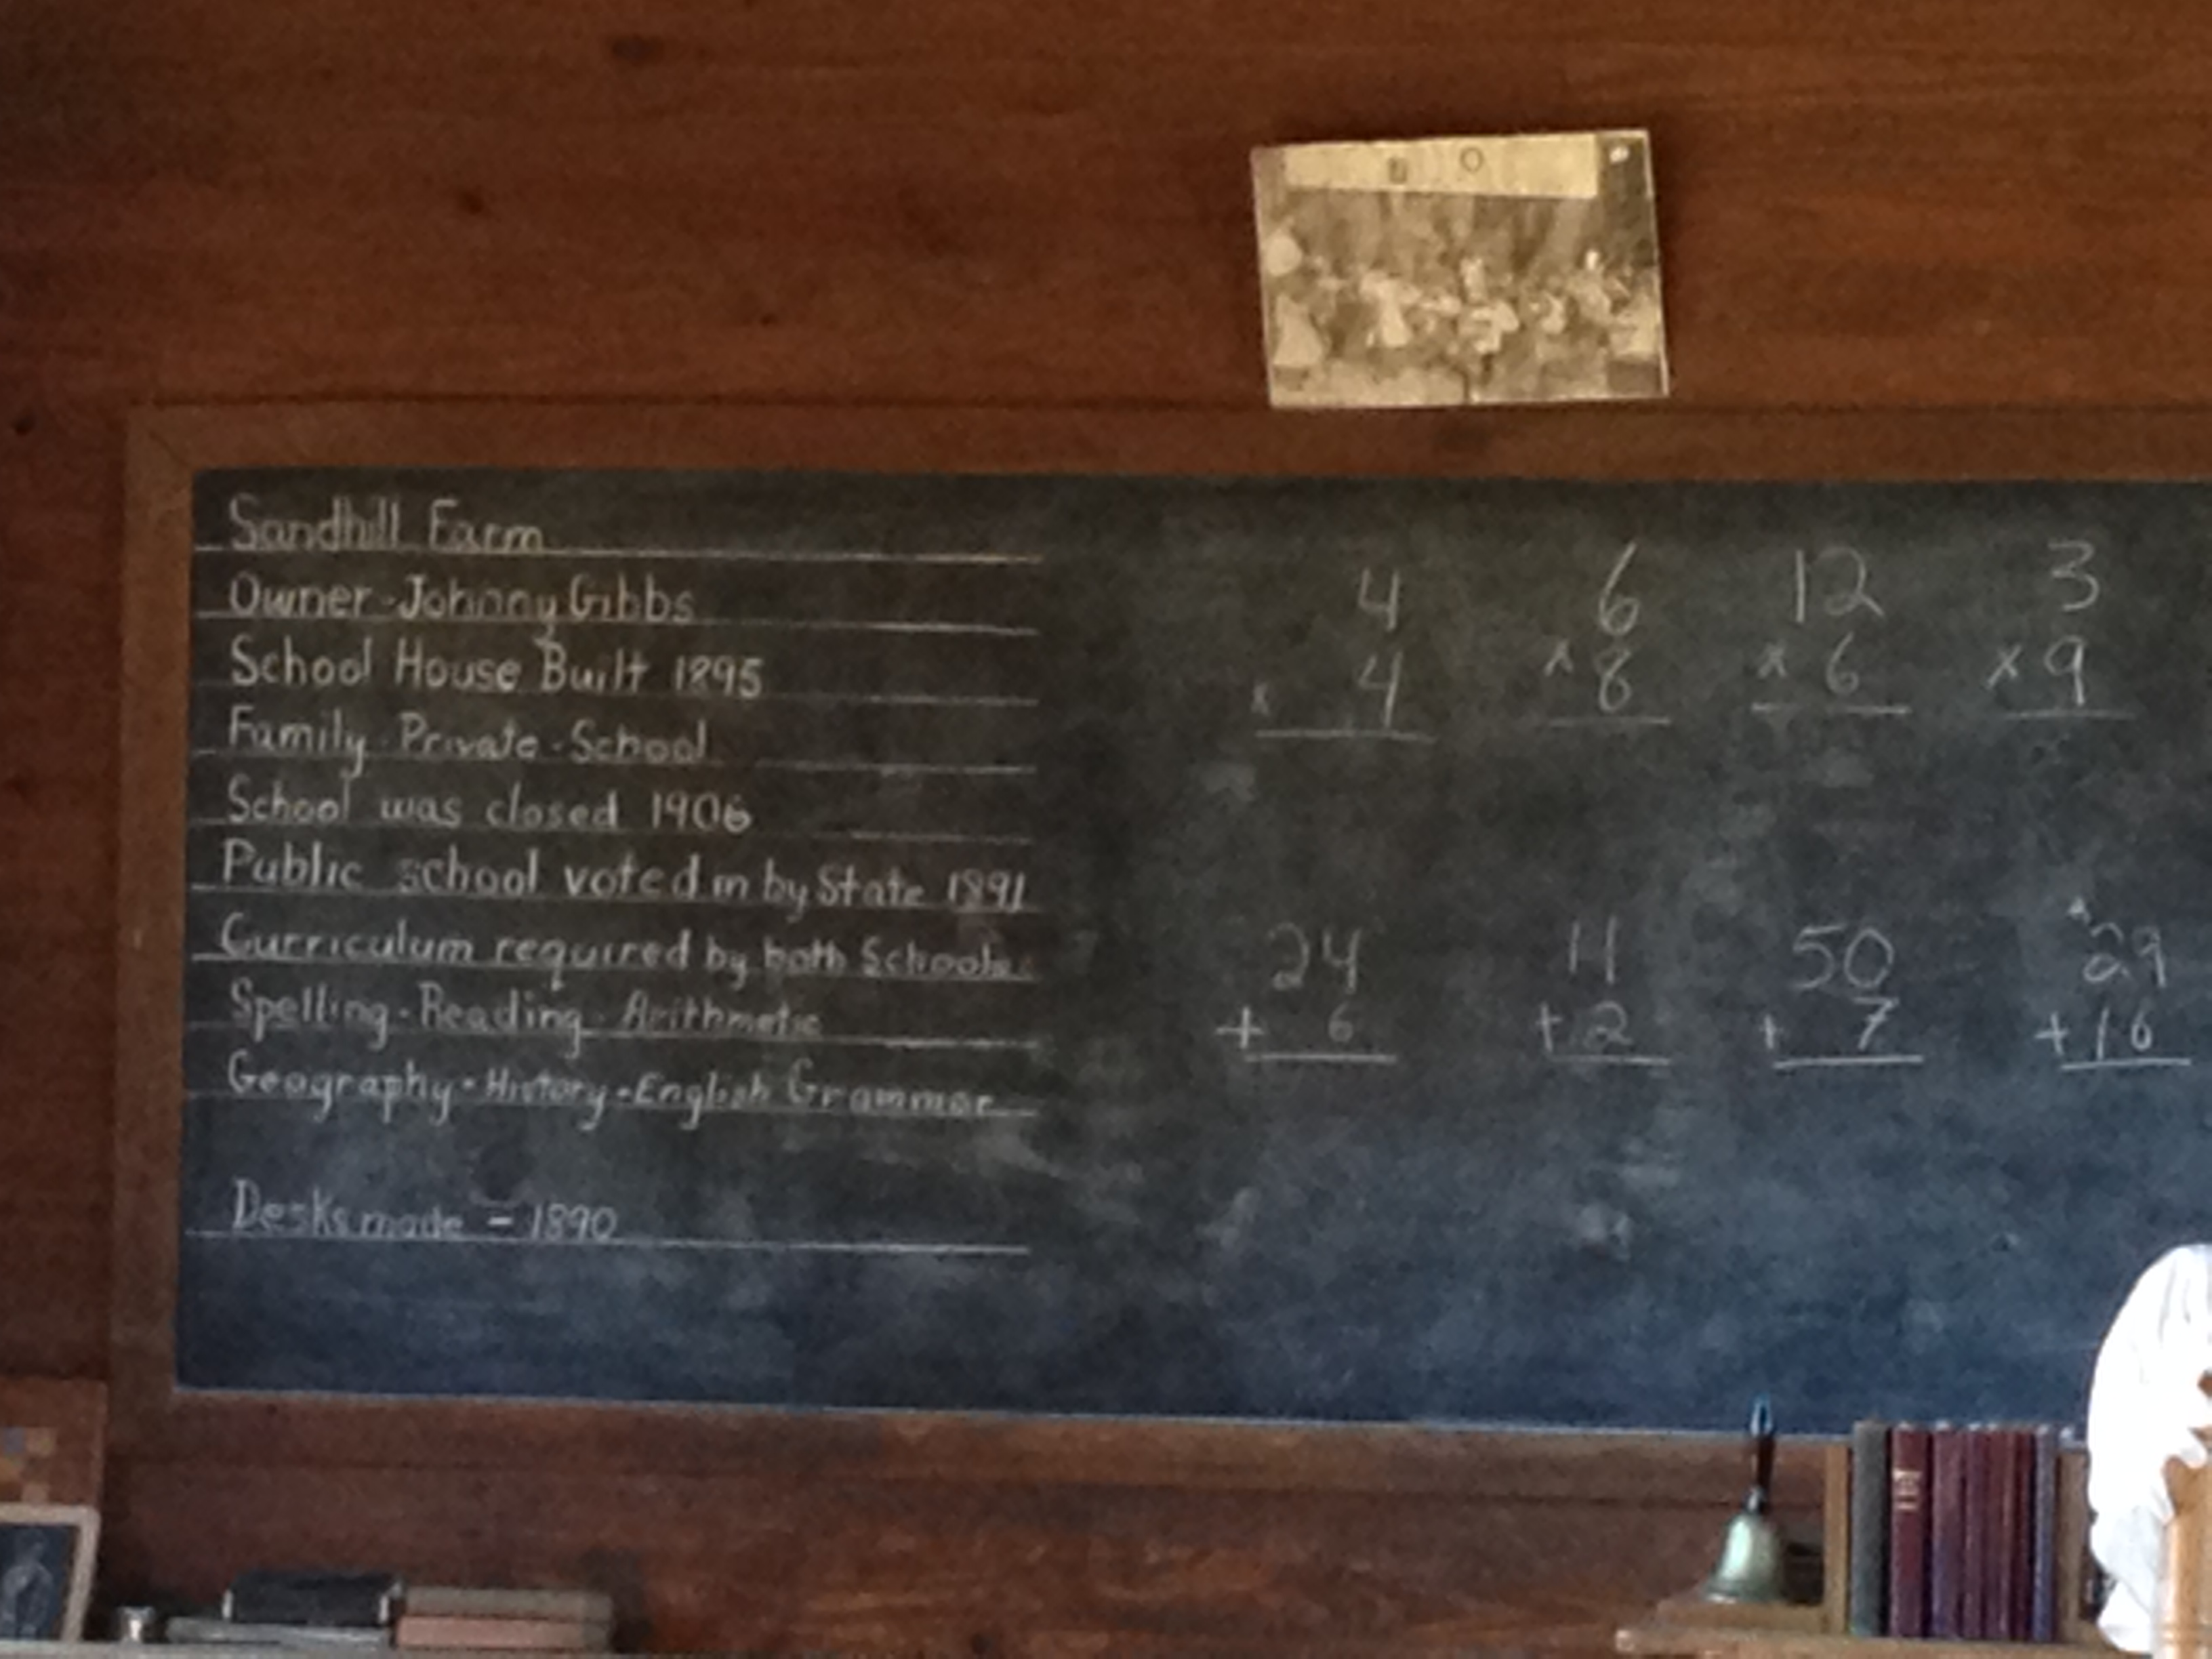 Sandhill Farm
Owner-Johnny Gibbs
School House Built 1895
Family-Private-School
School was closed 1906
Public school voted in by State 1891
Curriculum required by both Schools
Spelling-Reading-Arithmetic
Geography-History-English Grammar
Desks made - 1890
4 6 12 3
x 4 x 8 x 6 x 9
24 11 50 29
+ 6 + 2 + 7 + 16